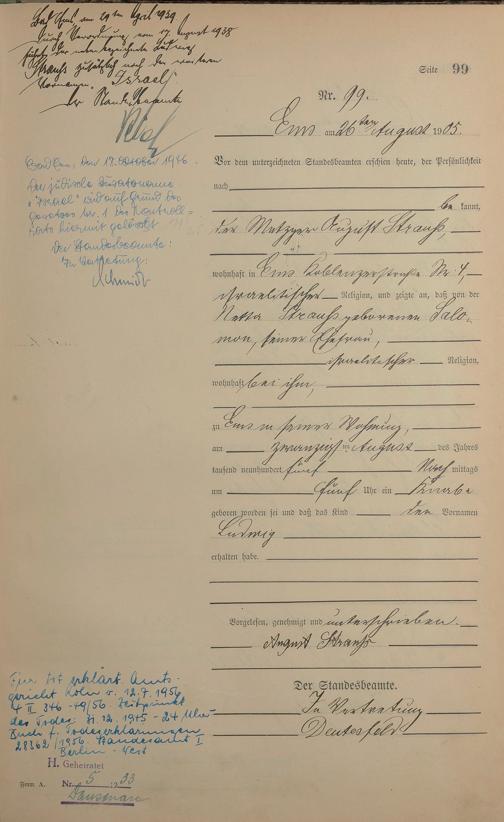 Bad Ems, am 29ten April 1939
Durch Verordnung vom 17. August 1938
führt der nebenbezeichnete Ludwig
Strauß zusätzlich noch den weiteren
Vornamen "Israel"
Der Standesbeamte
Bad Ems, den 17. Oktober 1946.
Der jüdische Zusatzname
"Israel" wird auf Grund des
Gesetzes Nr. 1 des Kontroll-
rats hiermit gelöscht
Der Standesbeamte:
In Vertretung:
Schmidt
Seite 99
Nr. 99.
Ems am 26ten August 1905.
Vor dem unterzeichneten Standesbeamten erschien heute, der Persönlichkeit
nach
be kannt,
der Metzger August Strauß,
wohnhaft in Ems Koblenzerstraße Nr. 4,
israelitischer Religion, und zeigte an, daß von der
Netta Strauß geborenen Salo-
mon, seiner Ehefrau,
israelitischer Religion,
wohnhaft bei ihm,
zu Ems in seiner Wohnung,
am zwanzigsten August des Jahres
tausend neunhundert fünf Nach mittags
um fünf Uhr ein Knabe
geboren worden sei und daß das Kind den Vornamen
Ludwig
erhalten habe.
Vorgelesen, genehmigt und unterschrieben.
August Strauß
Der Standesbeamte.
In Vertretung
Für tot erklärt Amts-
gericht Köln v. 12.7.1956
4 II 346 -49/56. Zeitpunkt
des Todes: 31.12.1945 - 24 Uhr-
Buch f. Todeserklärungen
28362/1956. Standesamt I
Berlin - West
H. Geheiratet
Form A. Nr. 5 1933